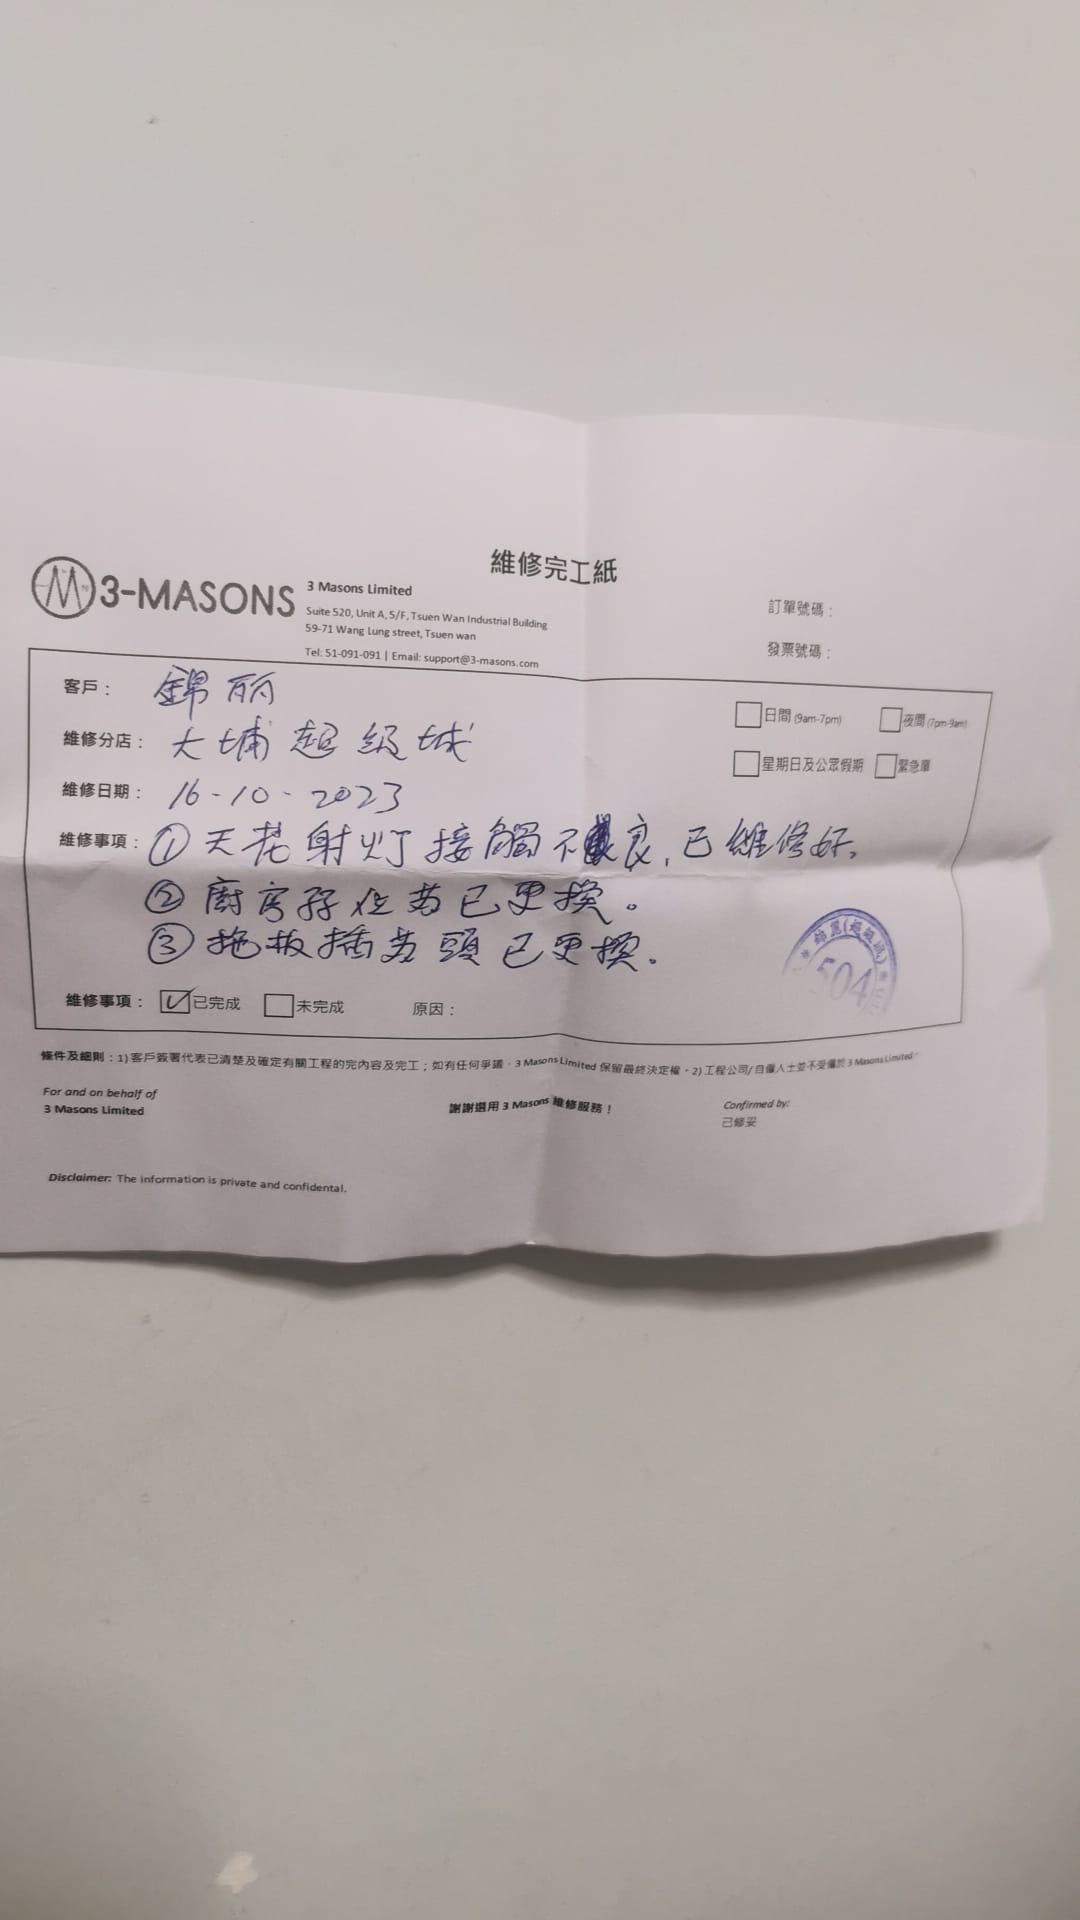 維修完工紙
3-MASONS
3 Masons Limited
Suite 520, Unit A, 5/F, Tsuen Wan Industrial Building
59-71 Wang Lung street, Tsuen wan
Tel: 51-091-091 | Email: support@3-masons.com
訂單號碼：
發票號碼：
客戶： 錦丽
維修分店： 大埔超级城
維修日期： 16-10-2023
日間 (9am-7pm) 夜間 (7pm-9am)
星期日及公眾假期 緊急單
維修事項：① 天花射灯接觸不良，已維修好。
② 廚房孖位苏已更換。
③ 拖板插苏頭已更換。
錦麗(超級城)
504
維修事項： ✓ 已完成 未完成 原因：
條件及細則：1) 客戶簽署代表已清楚及確定有關工程的完內容及完工；如有任何爭議，3 Masons Limited 保留最終決定權。2) 工程公司/自僱人士並不受僱於 3 Masons Limited
For and on behalf of
3 Masons Limited
謝謝選用 3 Masons 維修服務！
Confirmed by:
己修妥
Disclaimer: The information is private and confidental.